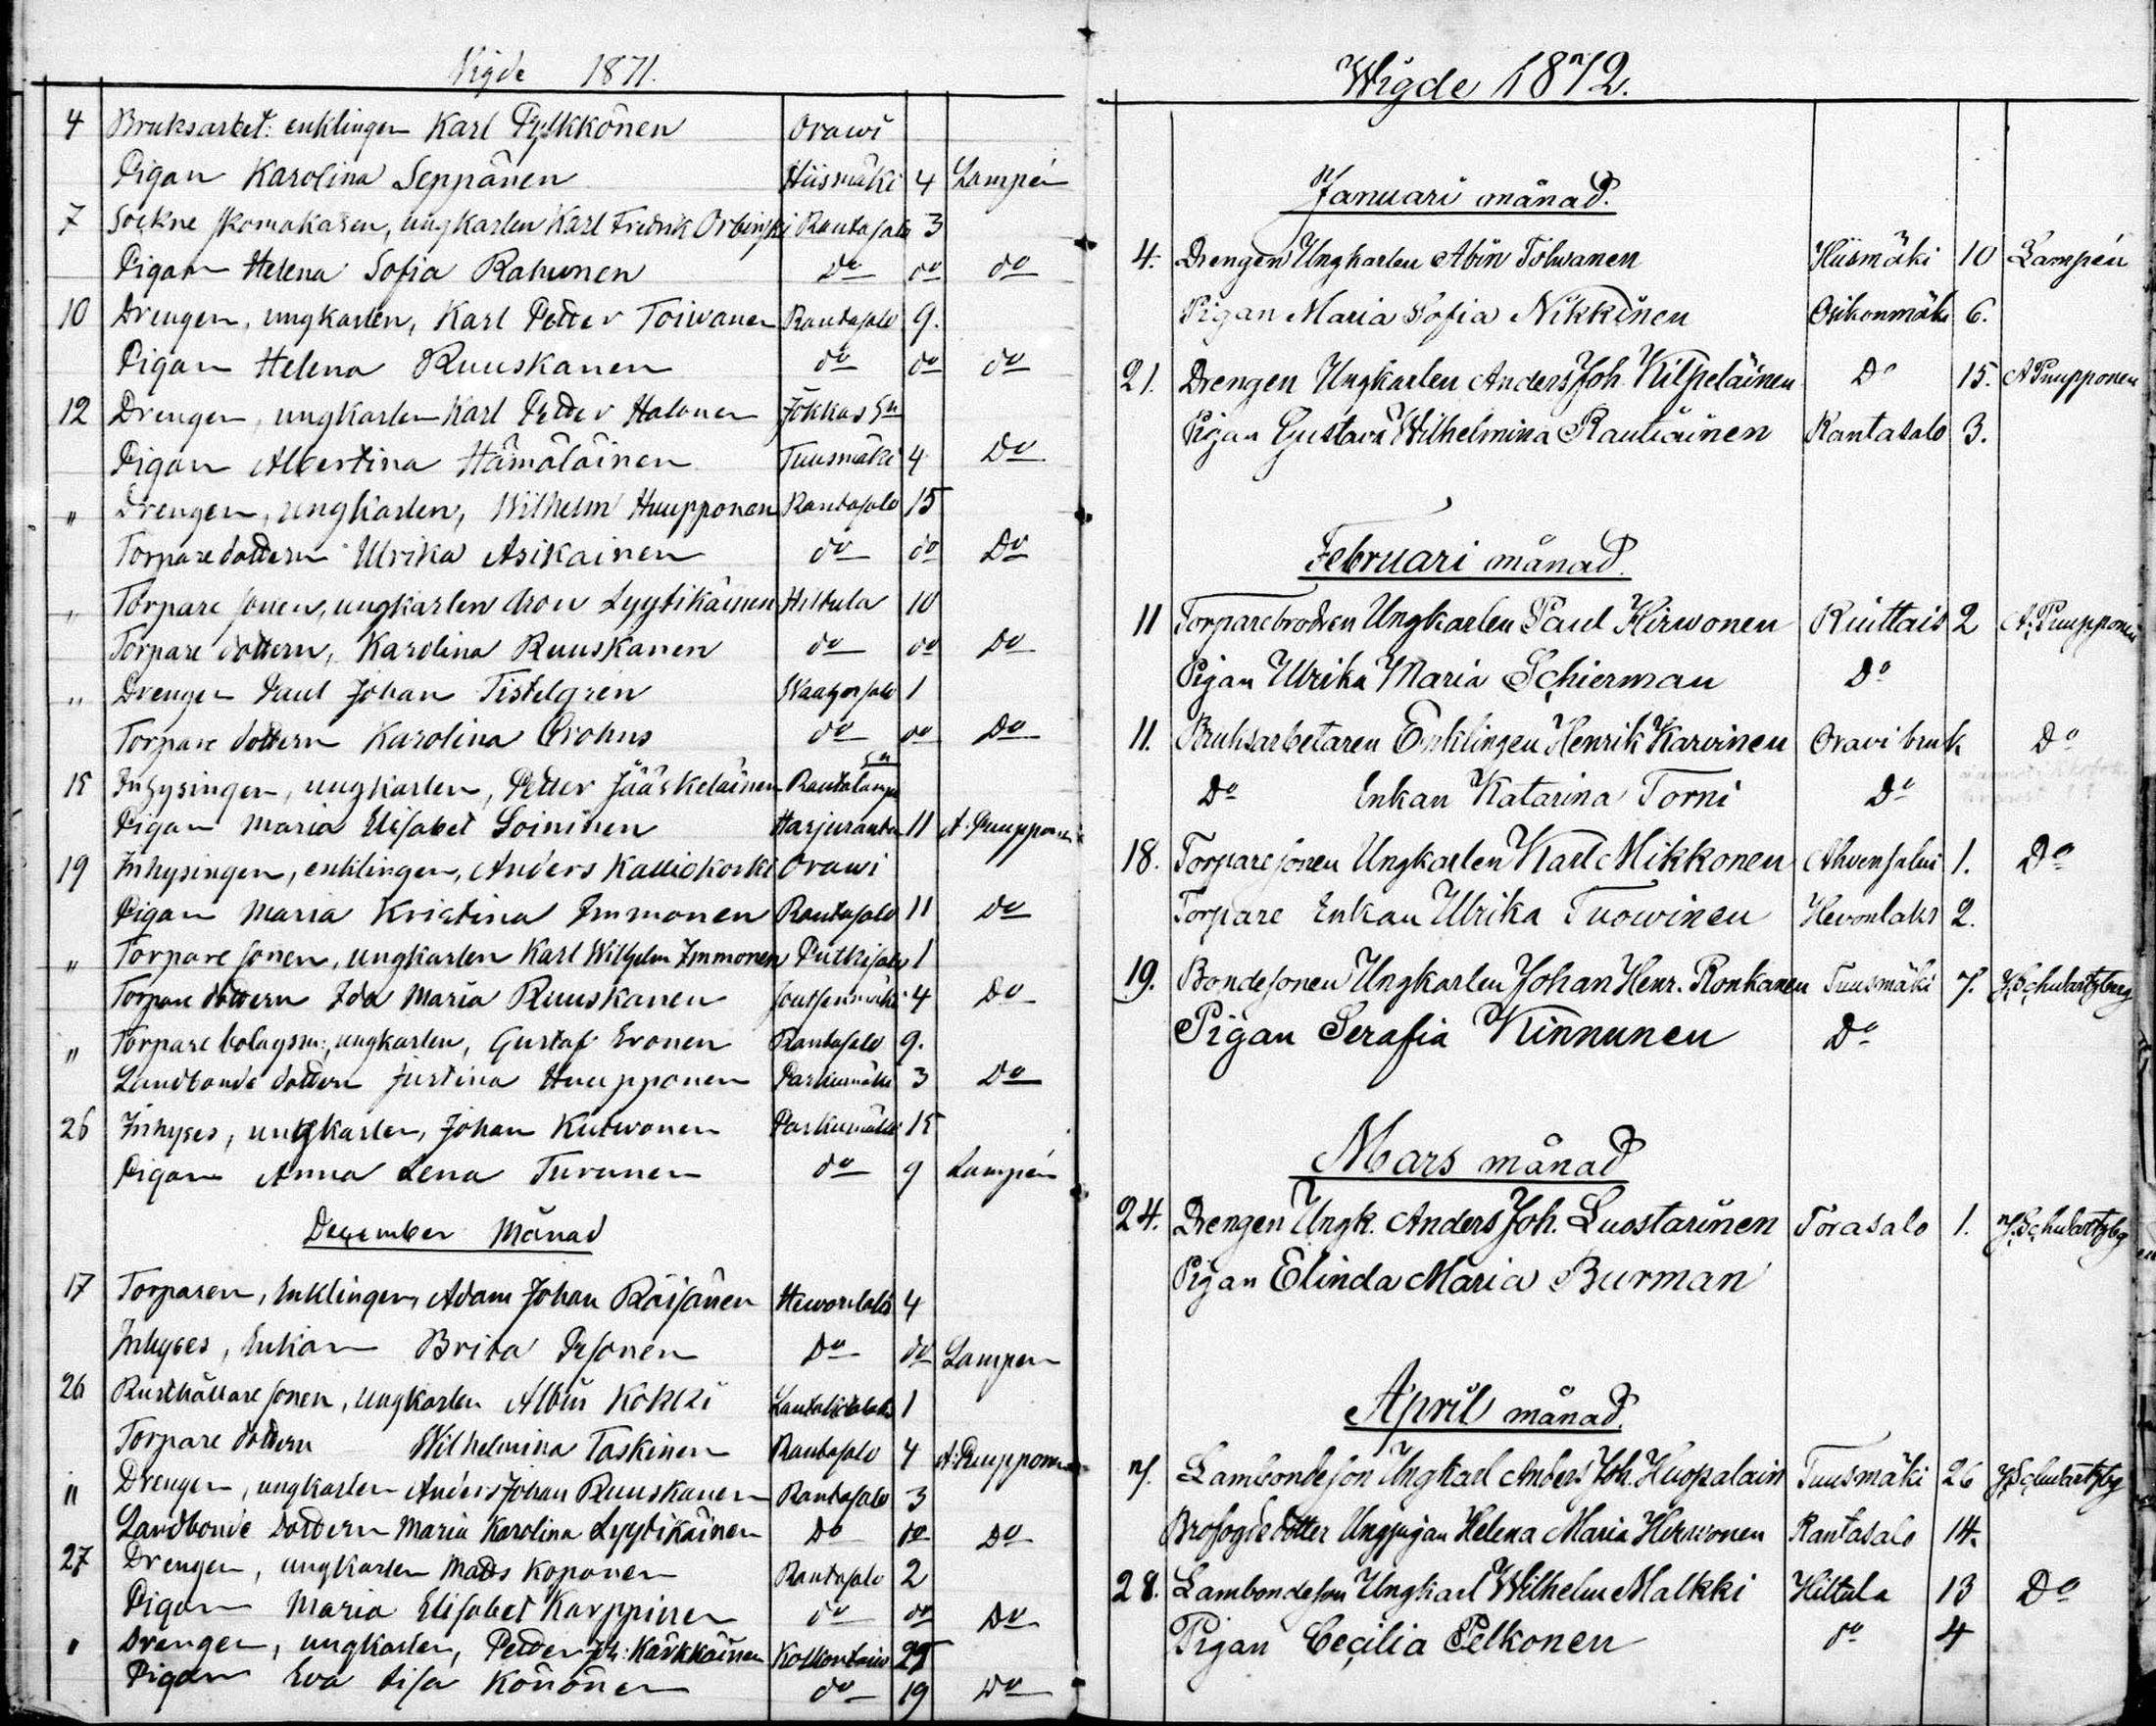 Vigde 1871.
4 Bruksarbet: enklingen Karl Pylkkönen Orawi
Pigan Karolina Seppänen Hiismäki 4 Lampén
7 Sockne skomakaren, ungkarlen Karl Fredrik Orbinski Rantasalo 3
Pigan Helena Sofia Rahunen Do do do
10 Drengen, ungkarlen, Karl Petter Toiwanen Rantasalo 9.
Pigan Helena Ruuskanen do do do
12 Drengen, ungkarlen Karl Petter Halonen Jokkas Sn
Pigan Albertina Hämäläinen Tuusmäki 4 Do
" Drengen, ungkarlen, Wilhelm Huupponen Rantasalo 15
Torparedottern Ulrika Asikainen do do Do
" Torpare sonen, ungkarlen Aron Lyytikäinen Hiltula 10
Torpare dottern, Karolina Ruuskanen do do Do
" Drengen Paul Johan Tistelgrén 1
Torpare dottern Karolina Crohns do do Do
15 Inhysingen, ungkarlen, Petter Jääskeläinen Rantalampi Sn
Pigan Maria Elisabet Loininen Harjuranta 11 A. Puupponen
19 Inhysingen, enklingen, Anders Kalliokoski Orawi
Pigan Maria Kristina Immonen Rantasalo 11 Do
" Torpare sonen, ungkarlen Karl Wilhelm Immonen Putkisalo 1
Torpare dottern Ida Maria Ruuskanen Joutsenmäki 4 Do
" Torpare bolagsm:, ungkarlen, Gustaf Eronen Rantasalo 9.
Landbonde dottern Justina Huupponen Parkumäki 3 Do
26 Inhyses, ungkarlen, Johan Kutwonen Parkumäki 15
Pigan Anna Lena Turunen do 9 Lampén
December Månad
17 Torparen, Enklingen, Adam Johan Räisänen Hewonlaks 4
Inhyses, Enkan Brita Pesonen Do do Lampen
26 Rusthållare sonen, ungkarlen Albin Kokki 1
Torpare dottern Wilhelmina Taskinen Rantasalo 4 A. Puupponen
" Drengen, ungkarlen Anders Johan Ruuskanen Rantasalo 3
Landbonde dottern Maria Karolina Lyytikäinen Do do Do
27 Drengen, ungkarlen Matts Koponen Rantasalo 2
Pigan Maria Elisabet Karppinen do do Do
" Drengen, ungkarlen, Petter Joh: Kärkkäinen Kolkontaiw 25
Pigan Eva Lisa Könönen do 19 Do
Wigde 1872.
Januari månad.
4. Drengen Ungkarlen Abin Tolwanen Hiismäki 10 Lampén
Pigan Maria Sofia Nikkinen Osikonmäki 6.
21. Drengen Ungkarlen Anders Joh. Kilpeläinen Do 15. A Puupponen
Pigan Gustava Wilhelmina Rautiainen Rantasalo 3.
Februari månad.
11 Torparebrodren Ungkarlen Paul Hirwonen Kuittais 2 A. Puupponen
Pigan Ulrika Maria Schierman Do
11. Bruksarbetaren Enklingen Henrik Karvinen Oravi bruk Do
Do Enkan Katarina Torni Do
18. Torparesonen Ungkarlen Karl Mikkonen Ahvensalmi 1. Do
Torpare Enkan Ulrika Tuowinen Hevonlaks 2.
19. Bondesonen Ungkarlen Johan Henr. Ronkanen Tuusmäki 7. J. Schwartzberg
Pigan Serafia Kinnunen Do
Mars månad
24. Drengen Ungk. Anders Joh. Luostarinen Torasalo 1. J. Schwartzbg
Pigan Elinda Maria Burman
April månad.
7. Lambondeson Ungkarl Anders Joh. Huopalain Tuusmäki 26 J. Schwartzbg
Brofogdedotter Ungpigan Helena Maria Hirwonen Rantasalo 14.
28. Lambondeson Ungkarl Wilhelm Malkki Hiltula 13 Do
Pigan Cecilia Pelkonen do 4